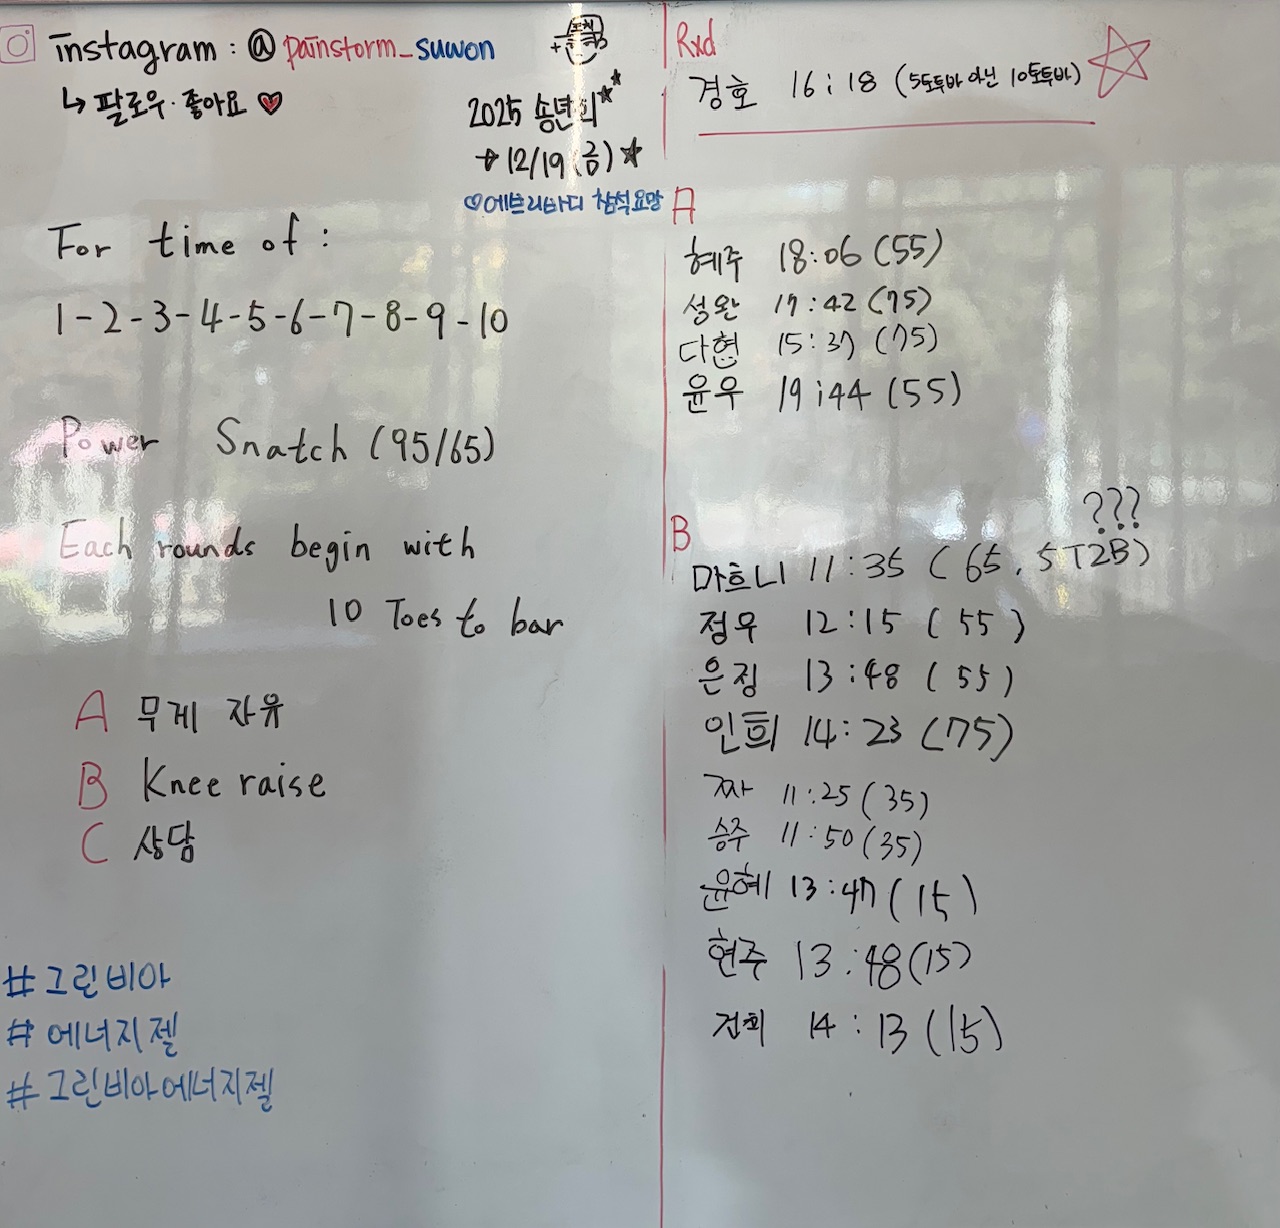 instagram : @painstorm_suwon
↳ 팔로우·좋아요 ♥
2025 송년회
→ 12/19(금) ★
♡에브리바디 참석요망
For time of :
1-2-3-4-5-6-7-8-9-10
Power Snatch (95/65)
Each rounds begin with
10 Toes to bar
A 무게 자유
B Knee raise
C 상담
#그린비아
#에너지젤
#그린비아에너지젤
Rxd
경호 16:18 (5토투바 아닌 10토투바)
A
혜주 18:06 (55)
성완 17:42 (75)
다현 15:37 (75)
윤우 19:44 (55)
B
???
마흐니 11:35 (65, 5T2B)
정우 12:15 (55)
은징 13:48 (55)
인희 14:23 (75)
짜 11:25 (35)
승주 11:50 (35)
윤혜 13:47 (15)
현주 13:48 (15)
14:13 (15)